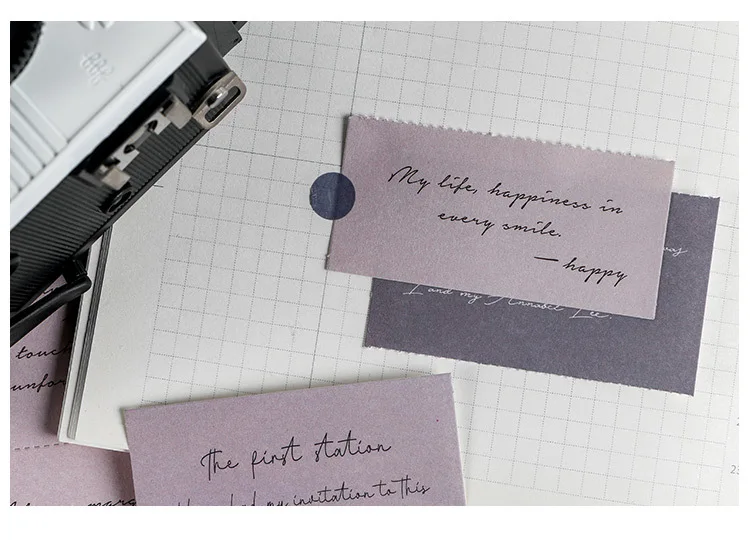 My life, happiness in
every smile.
— happy
I and my Annabel Lee.
touch
The first station
my invitation to this
23